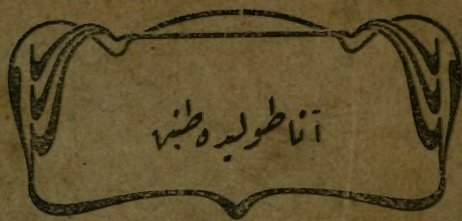 آناطولیده طنین